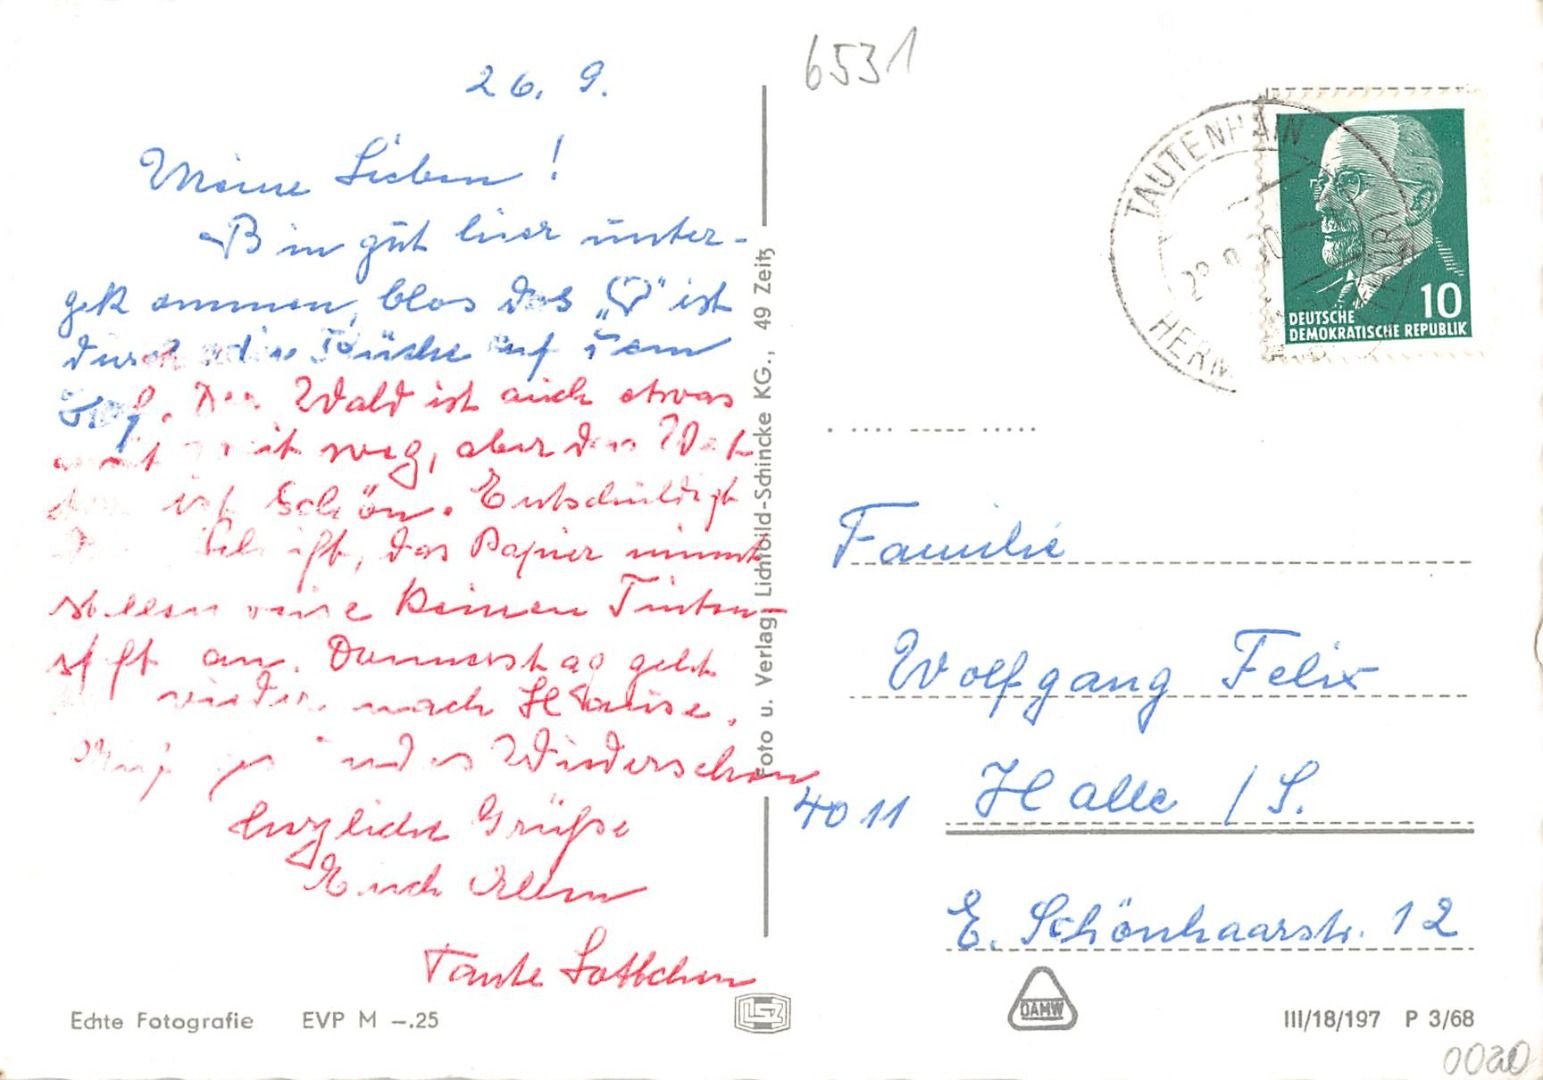 26. 9.
Meine Lieben!
Bin gut hier unter-
gekommen, blos das „♡" ist
durch die Küche auf dem
Hof. Der Wald ist auch etwas
weit weg, aber das Wet
ist schön. Entschuldigt
Schrift, das Papier nimmt
stellenweise keinen Tinten-
stift an. Donnerstag geht
wieder nach Hause.
Auf Wiedersehen
herzliche Grüße
Euch allen
Tante Lottchen
Echte Fotografie EVP M –.25
Foto u. Verlag: Lichtbild-Schincke KG., 49 Zeitz
6531
TAUTENHAIN
HERM
DEUTSCHE
DEMOKRATISCHE REPUBLIK
10
Familie
Wolfgang Felix
4011 Halle / S.
E. Schönhaarstr. 12
DAMW
III/18/197 P 3/68
0020